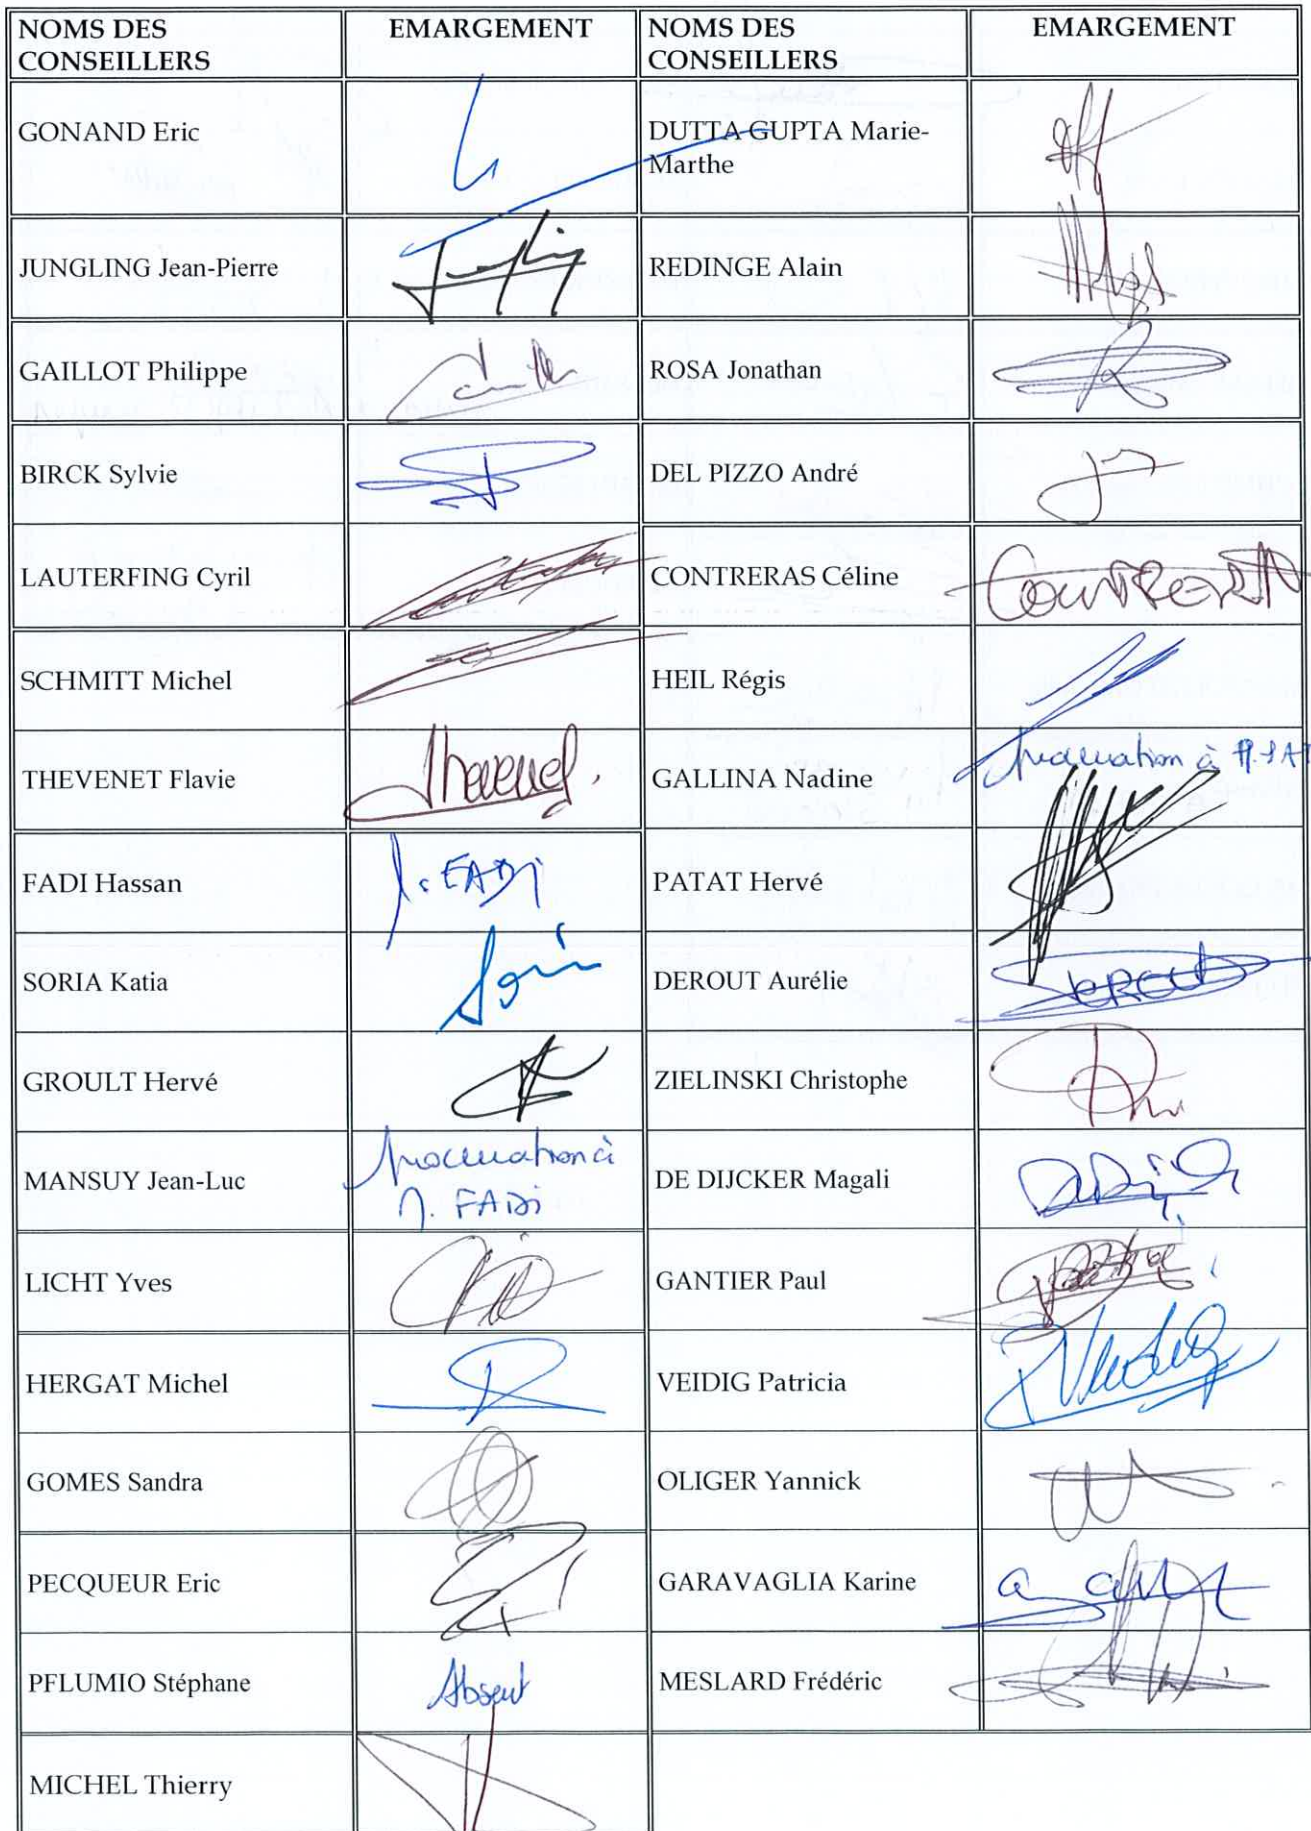 NOMS DES
CONSEILLERS
EMARGEMENT
NOMS DES
CONSEILLERS
EMARGEMENT
GONAND Eric
DUTTA GUPTA Marie-
Marthe
JUNGLING Jean-Pierre
REDINGE Alain
GAILLOT Philippe
ROSA Jonathan
BIRCK Sylvie
DEL PIZZO André
LAUTERFING Cyril
CONTRERAS Céline
SCHMITT Michel
HEIL Régis
THEVENET Flavie
Thevenet
GALLINA Nadine
procuration à
FADI Hassan
FADI
PATAT Hervé
SORIA Katia
DEROUT Aurélie
DEROUT
GROULT Hervé
ZIELINSKI Christophe
MANSUY Jean-Luc
procuration à
M. FADI
DE DIJCKER Magali
LICHT Yves
GANTIER Paul
HERGAT Michel
VEIDIG Patricia
GOMES Sandra
OLIGER Yannick
PECQUEUR Eric
GARAVAGLIA Karine
PFLUMIO Stéphane
Absent
MESLARD Frédéric
MICHEL Thierry